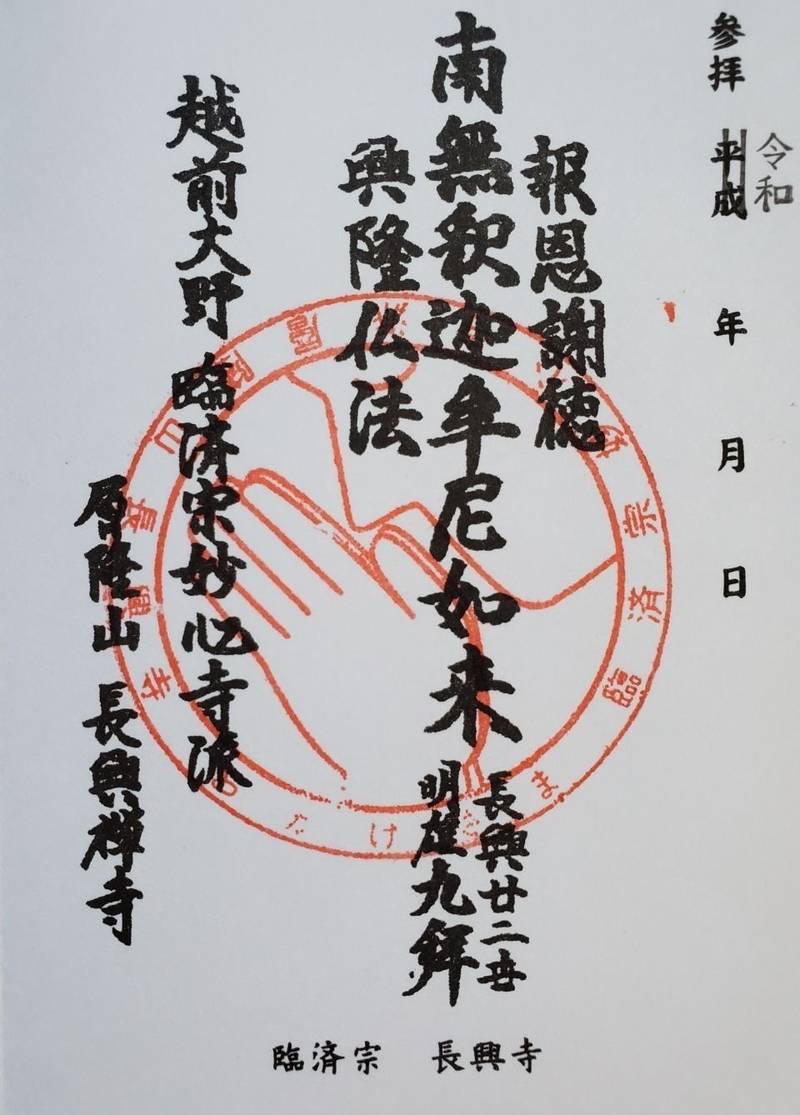 令和
参拝 平成 年 月 日
報恩謝徳
南無釈迦牟尼如来
興隆仏法
長興廿二世
九拜
越前大野 臨済宗妙心寺派
長興禅寺
臨済宗 長興寺
臨済宗